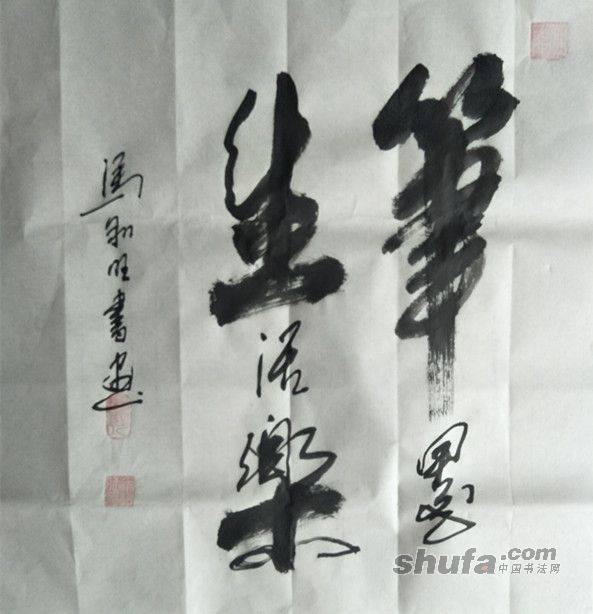 筆墨
生活樂
馮知旺書画
shufa.com
中国书法网